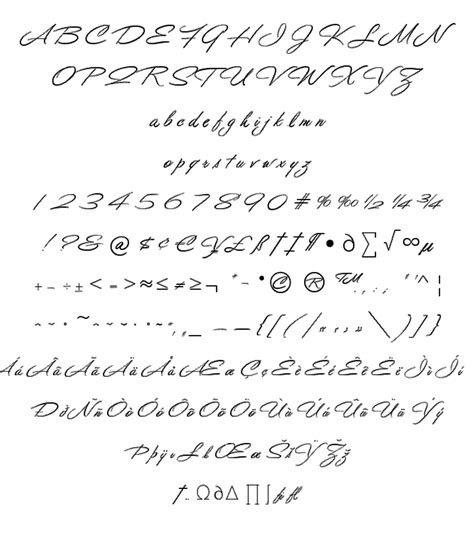 A B C D E F G H I J K L M N
O P Q R S T U V W X Y Z
a b c d e f g h i j k l m n
o p q r s t u v w x y z
1 2 3 4 5 6 7 8 9 0 # % ‰ ½ ¼ ¾
! ? & @ $ ¢ € ¥ £ ß † ‡ ¶ • ∂ ∑ √ ∞ µ
+ − ÷ ± < = > ≈ ≤ ≠ ≥ ¬ • © ® ™ ¦
_ – — { [ ( / \ ) ] }
Á á Â â Ã ã Ä ä Å å Æ æ Ç ç È è É é Ê ê Ë ë Ì ì Í í
Ð ð Ñ ñ Ò ò Ó ó Ô ô Õ õ Ö ö Ù ù Ú ú Û û Ü ü Ý ý
Þ þ ÿ Ł ł Œ œ Š š Ÿ Ž ž
† Ω ∂ ∆ ∏ ∫ ﬁ ﬂ